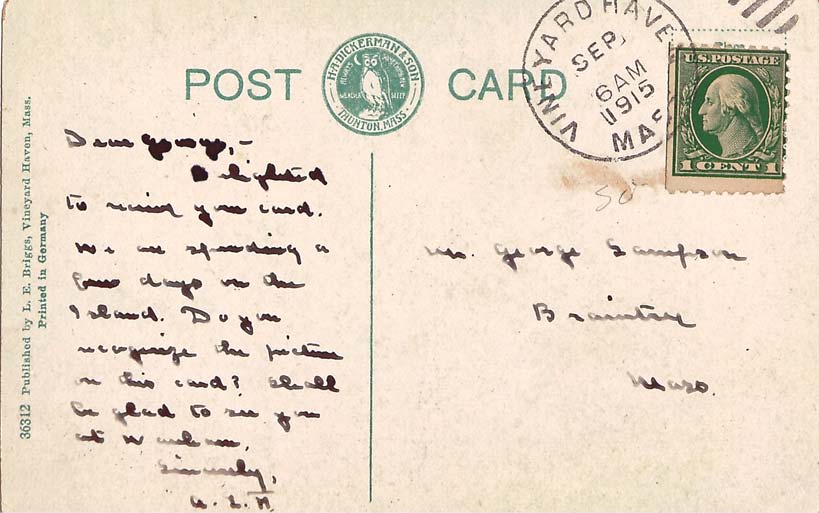 POST CARD
H.A. DICKERMAN & SON
TAUNTON, MASS.
VINEYARD HAVEN
SEP
6 AM
1915
MASS
U.S. POSTAGE
1 CENT 1
50
36312 Published by L. E. Briggs, Vineyard Haven, Mass.
Printed in Germany
Dear George,-
Delighted
to receive your card.
We are spending a
few days on the
Island. Do you
recognize the picture
on this card? Shall
be glad to see you
at
Sincerely,
Mr. George Sampson
Braintree
Mass.